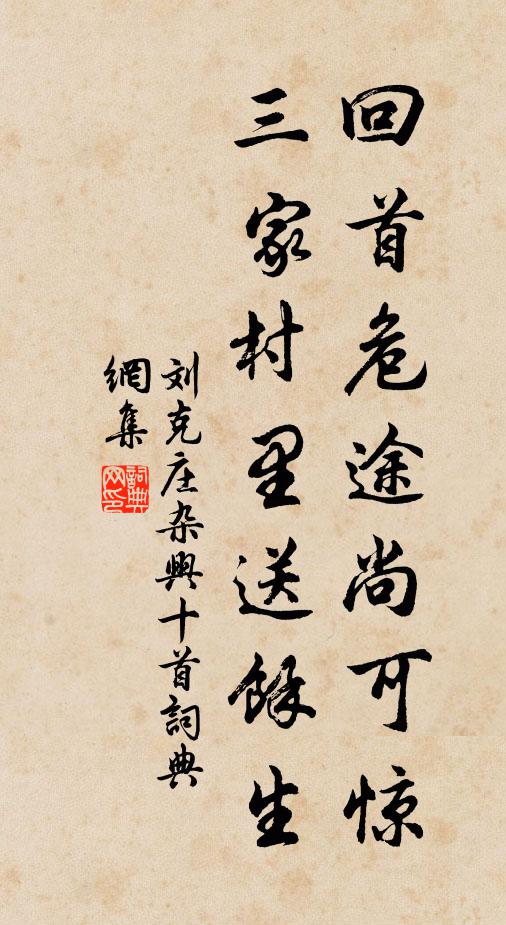 回首危途尚可惊
三家村里送餘生
刘克庄杂興十首詞典
網集
詞典
网印